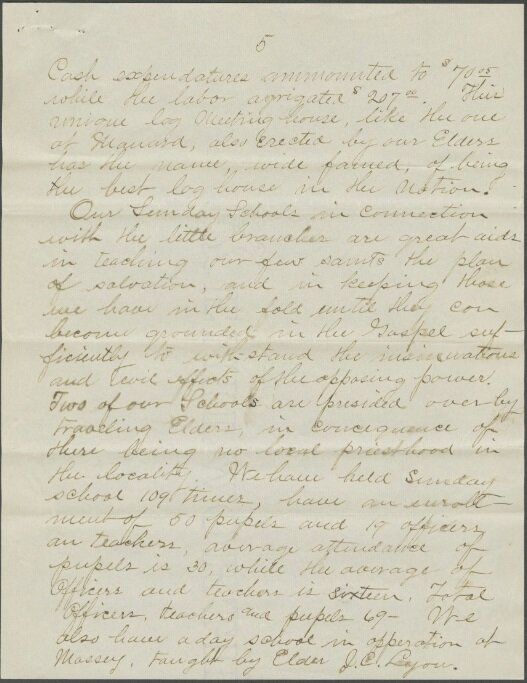 5
Cash expendatures ammounted to $70.05
while the labor agrigated $207.00. This
unique log Meeting house, like the one
at Manard, also Erected by our Elders
has the name, wide famed, of being
the best log house in the Nation!
Our Sunday Schools in connection
with the little branches are great aids
in teaching our few saints the plan
of salvation, and in keeping those
we have in the fold until they can
become grounded in the Gospel suf-
ficiently to withstand the insinuations
and evil effects of the opposing power.
Two of our Schools are presided over by
traveling Elders, in concequence of
there being no local priesthood in
the locality. We have held Sunday
school 109 times, have an enroll-
ment of 50 pupils and 19 officers
an teachers, average attendance of
pupils is 30, while the average of
Officers and teachers is sixteen. Total
Officers, teachers and pupils 69- We
also have a day school in opperation at
Massey, taught by Elder J.C. Lyon.